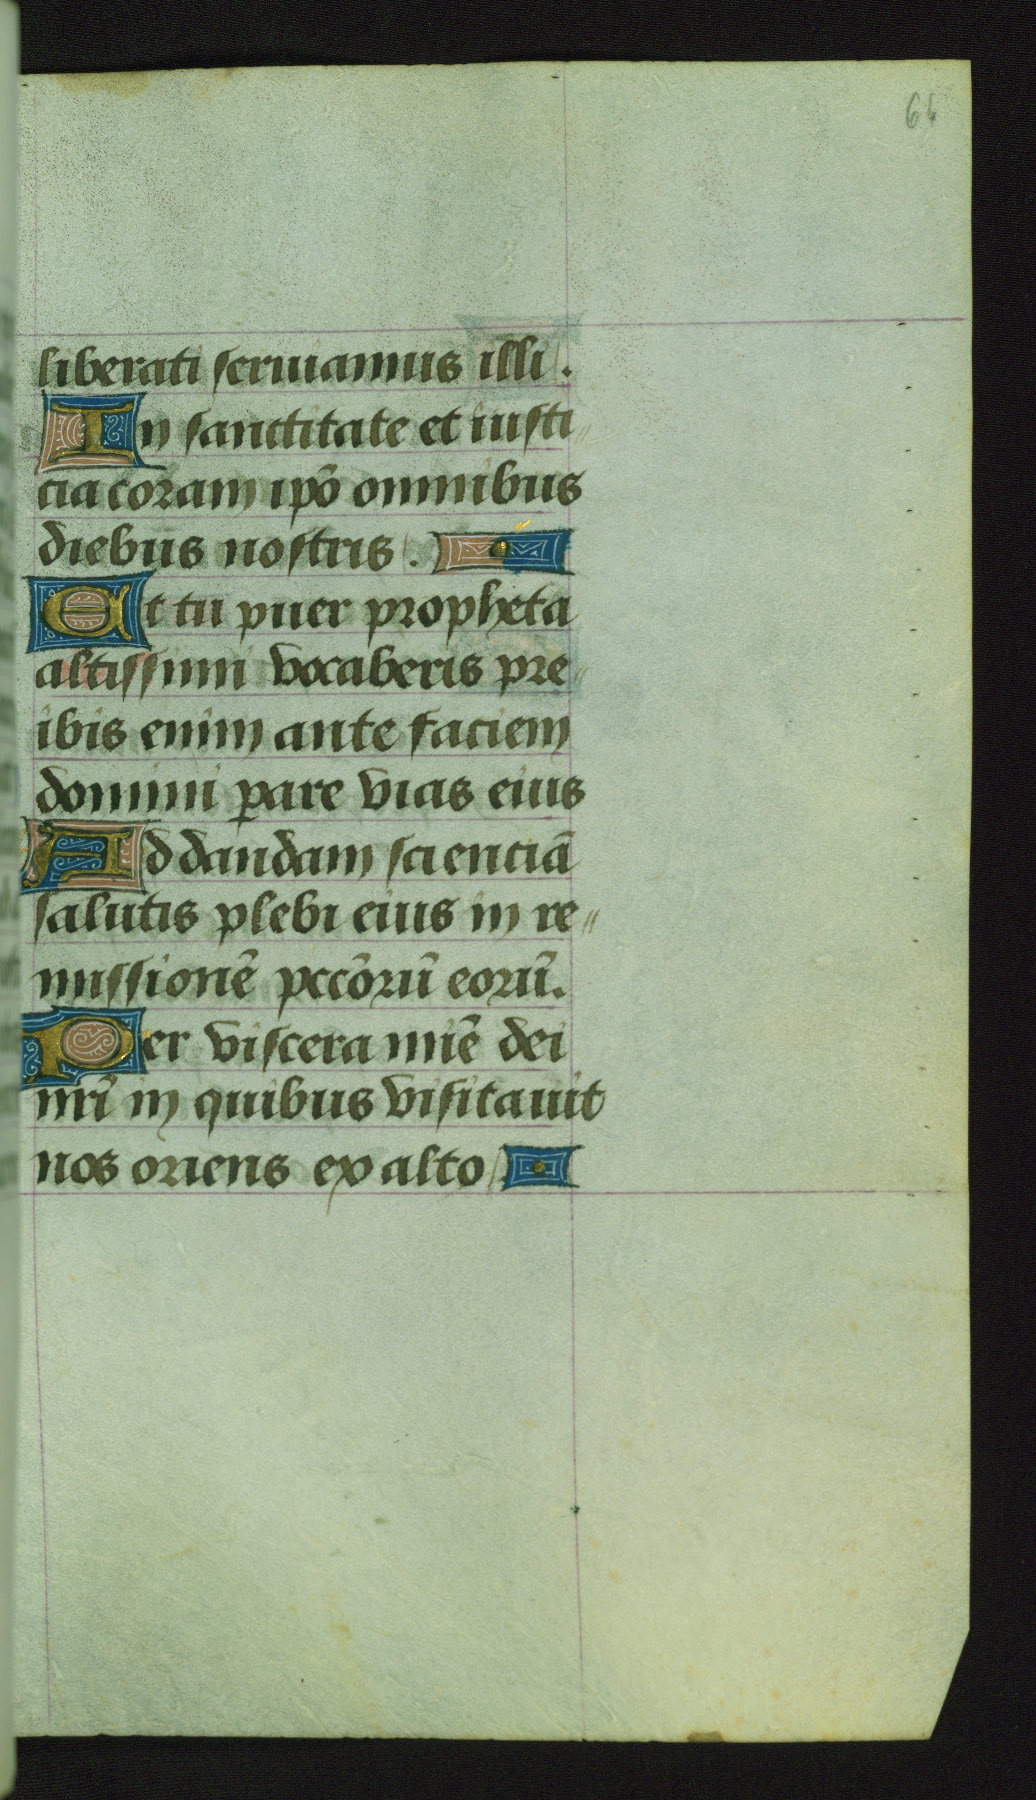 liberati seruiamus illi.
In sanctitate et iusti
cia coram ipõ omnibus
diebus nostris.
Et tu puer propheta
altissimi vocaberis pre
ibis enim ante faciem
domini pare vias eius
Ad dandam scienciã
salutis plebi eius in re
missionẽ pccõrũ eorũ.
Per viscera miẽ dei
nrĩ in quibus visitauit
nos oriens ex alto